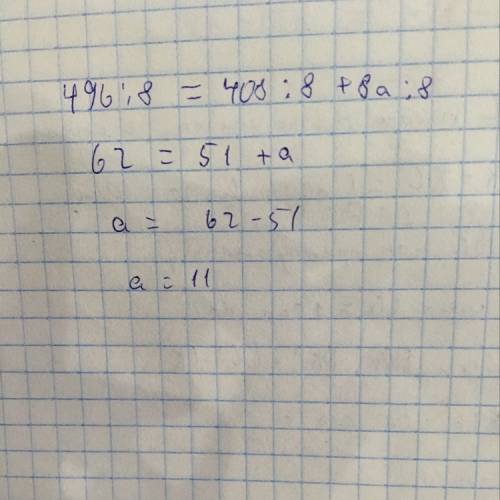 496:8 = 408:8 + 8a:8
62 = 51 + a
a = 62 - 51
a = 11